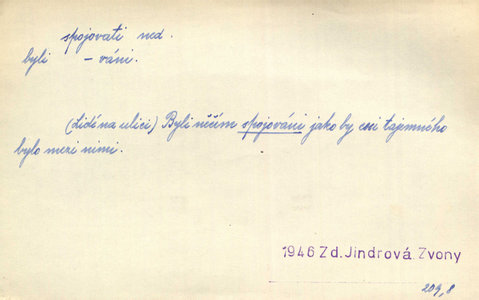 spojovati ned.
byli – váni.
(Lidé na ulici) Byli něčím spojováni jako by cosi tajemného
bylo mezi nimi.
1946 Zd. Jindrová. Zvony
209,8